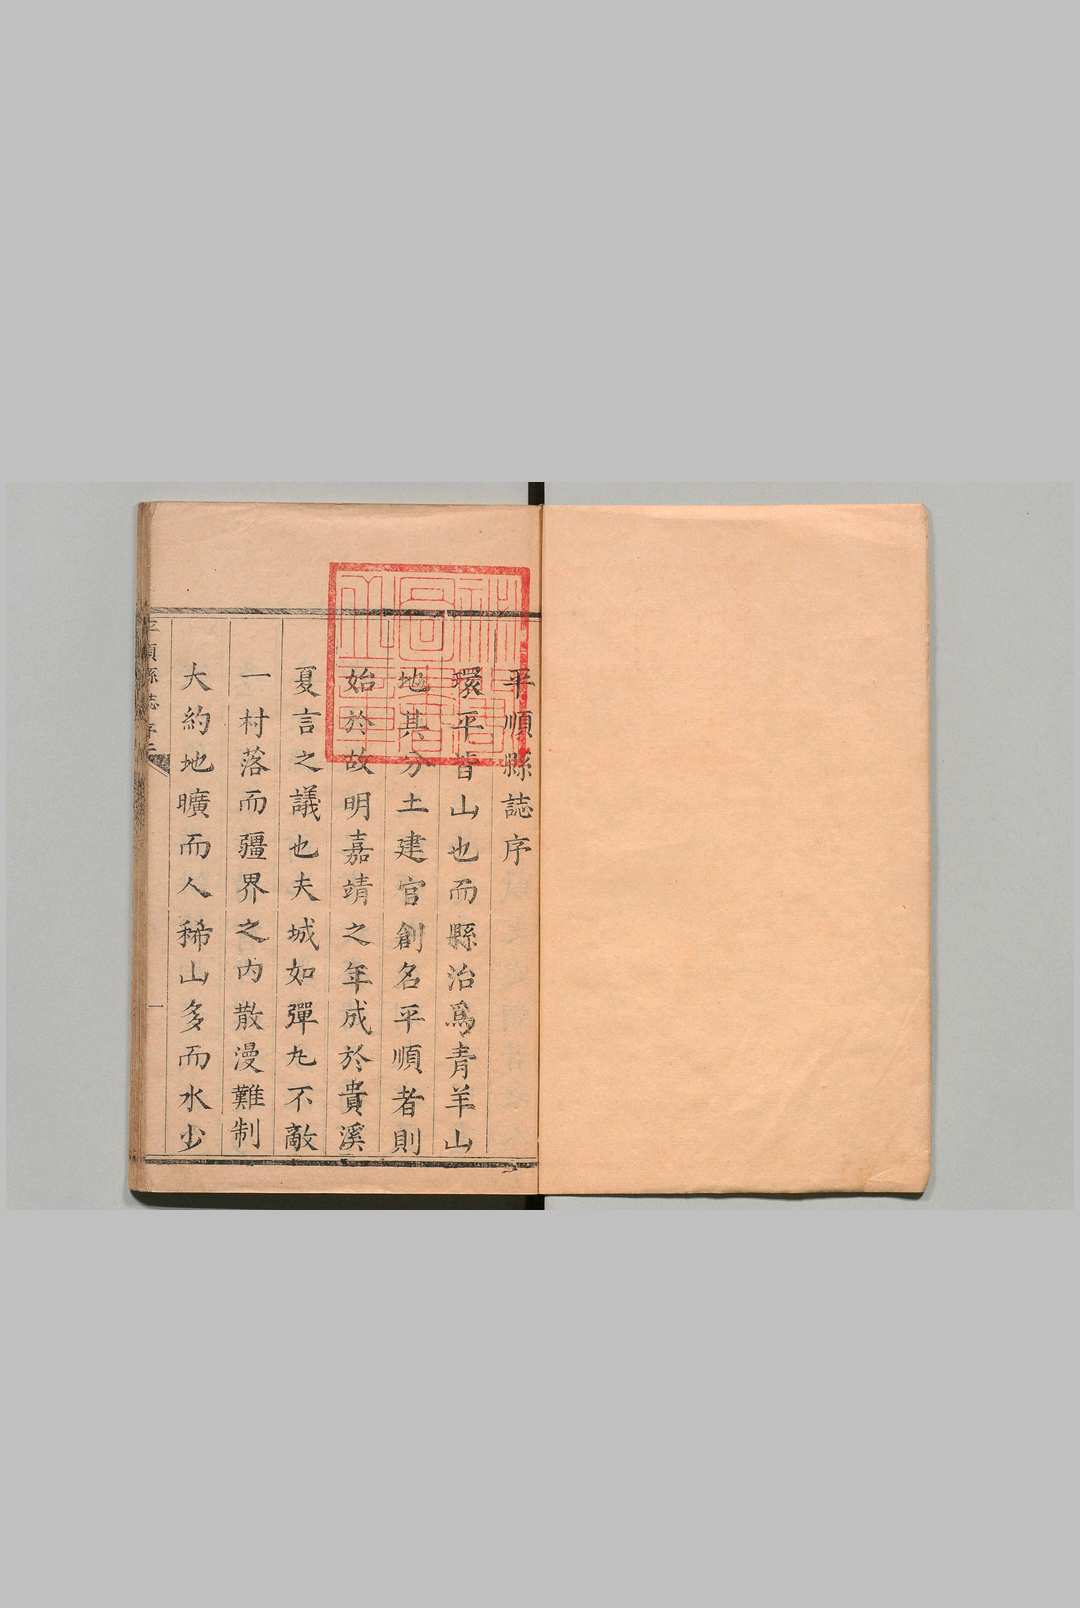 平順縣誌序
環平皆山也而縣治爲青羊山
地其分土建官創名平順者則
始於故明嘉靖之年成於貴溪
夏言之議也夫城如彈丸不敵
一村落而疆界之內散漫難制
大約地曠而人稀山多而水少
平順縣誌
序
一